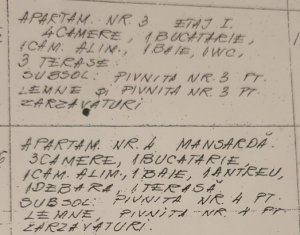 APARTAM. NR. 3 ETAJ I.
4 CAMERE, 1 BUCATARIE,
1 CAM. ALIM., 1 BAIE, 1 WC,
3 TERASE.
SUBSOL: PIVNITA NR. 3 PT.
LEMNE ȘI PIVNITA NR. 3 PT.
ZARZAVATURI.
APARTAM. NR. 4 MANSARDĂ.
3 CAMERE, 1 BUCATARIE,
1 CAM. ALIM., 1 BAIE, 1 ANTREU,
1 DEBARA, 1 TERASĂ.
SUBSOL: PIVNITA NR. 4 PT.
LEMNE, PIVNITA NR. 4 PT.
ZARZAVATURI.